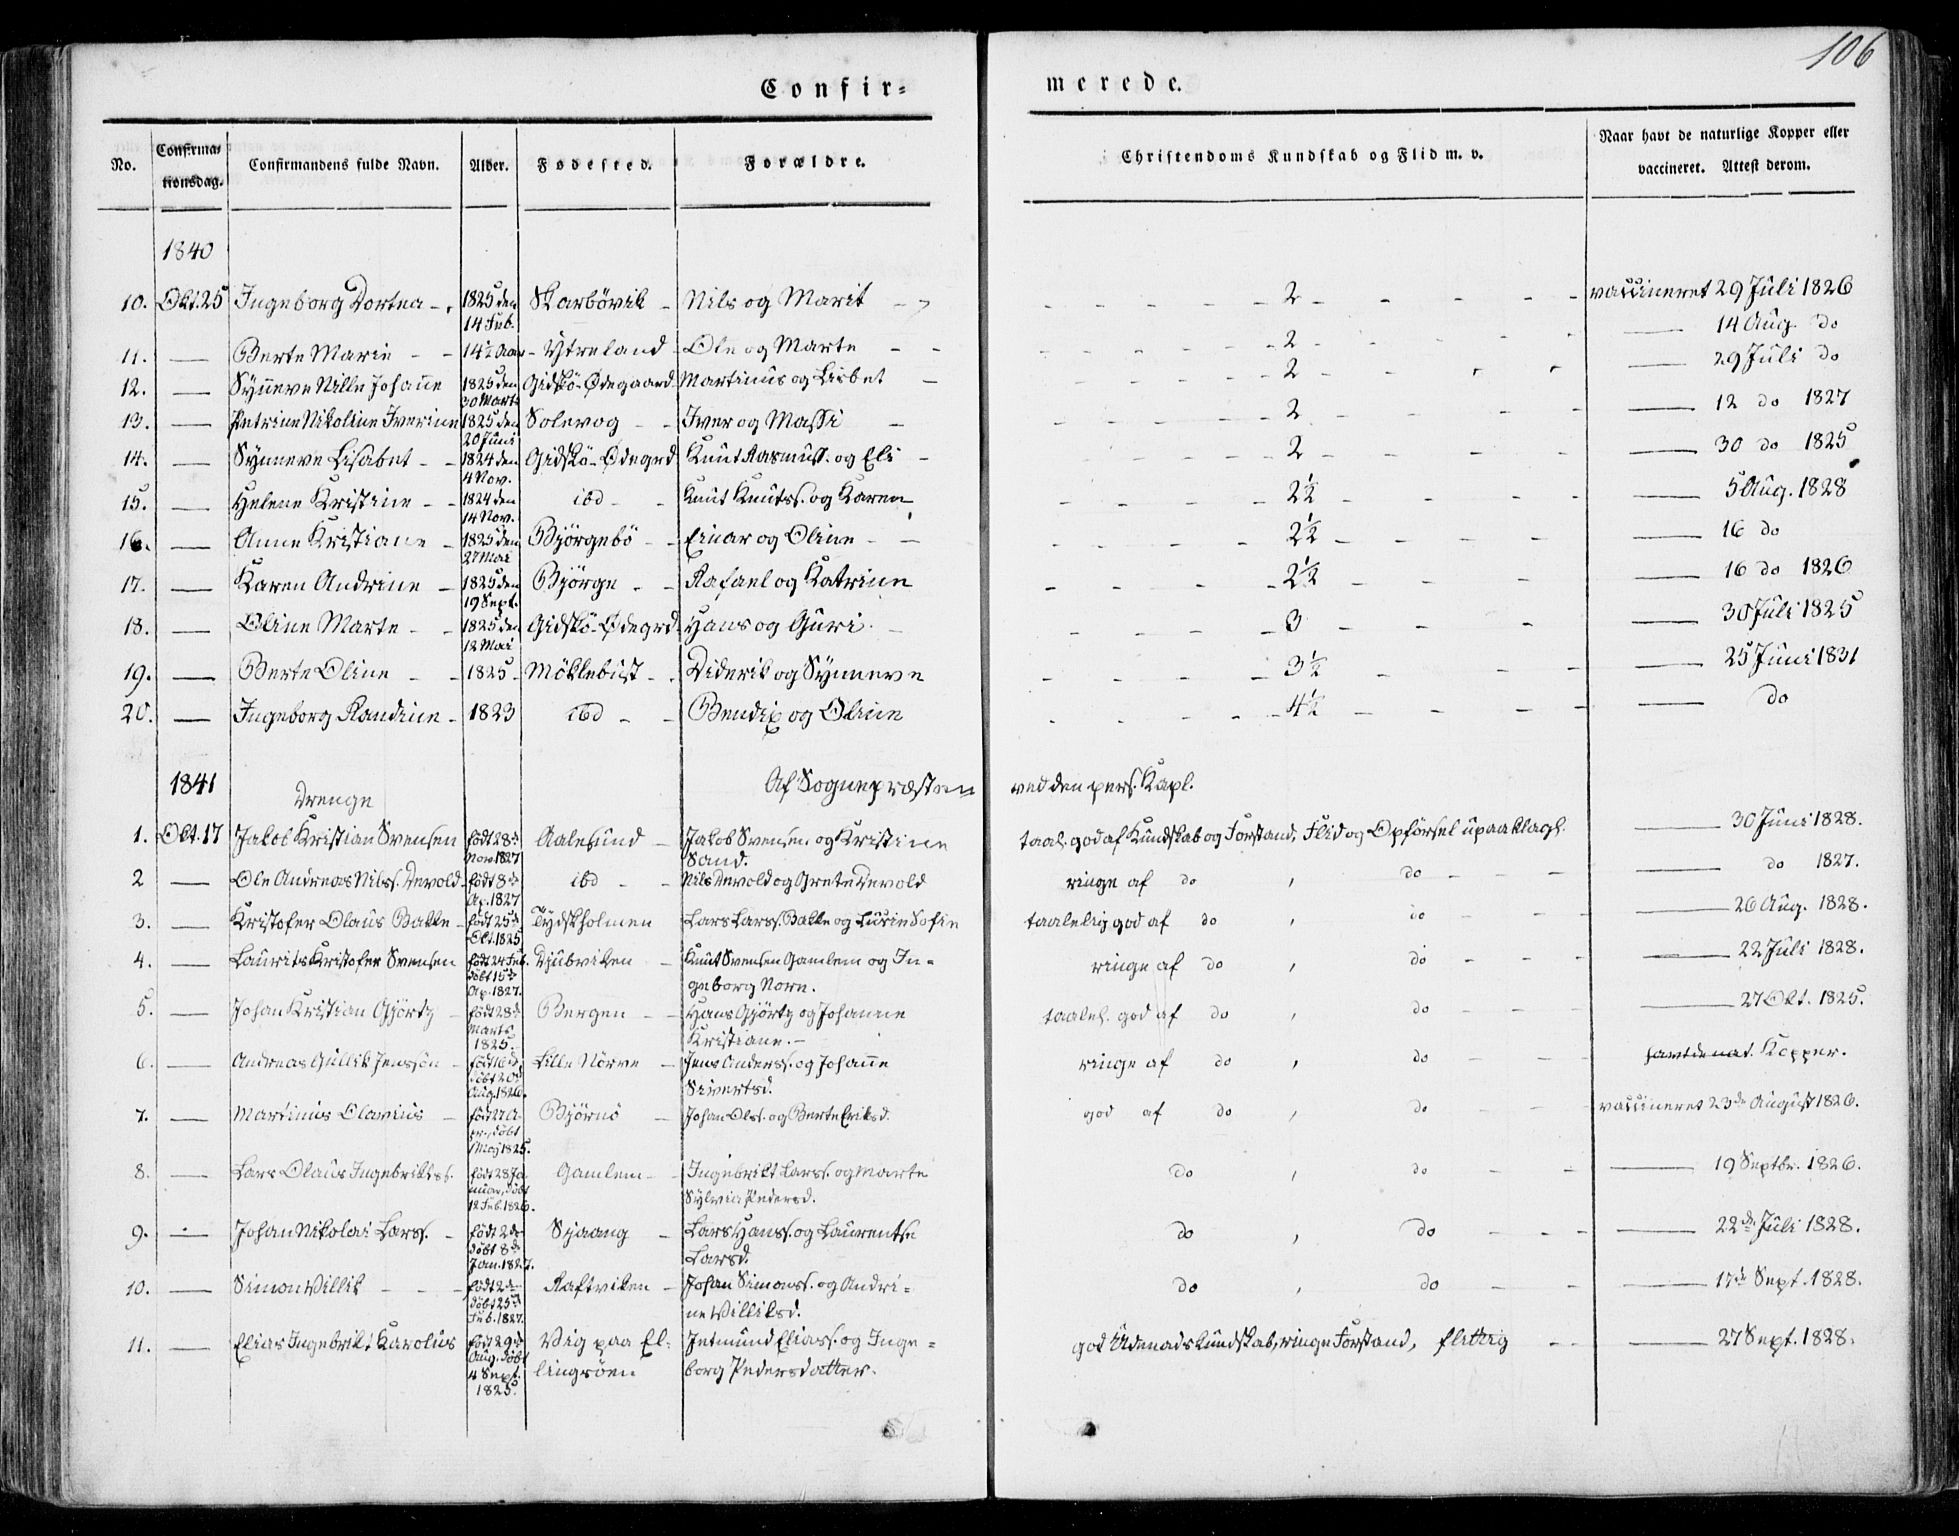 106
Confir- merede.
No. Confirmationsdag. Confirmandens fulde Navn. Alder. Fødested. Forældre. Christendoms Kundskab og Flid m. v. Naar havt de naturlige Kopper eller vaccineret. Attest derom.
1840
10. Okt. 25 Ingeborg Dortea - 1825 den 14 Feb. Skarbövik - Nils og Marit - 2 - vaccineret 29 Juli 1826
11. — Berte Marie - - 14½ Aar - Ytreland - Ole og Marte - - 2 — 14 Aug. do
12. — Synneve Nille Johanne 1825 den 30 Marts Gidskö-Ødegaard Martinus og Lisbet - 2 — 29 Juli do
13. — Petrine Nikoline Iverine 1825 den 20 Juni Solevog - - Iver og Massi - 2 — 12 do 1827
14. — Synneve Lisabet - - 1824 den 4 Nov. Gidskö-Ødegrd Knut Rasmuss. og Eli - 2 — 30 do 1825
15. — Helene Kristine - - 1824 den 14 Nov. ibd - - Knut Knutss. og Karen 2½ — 5 Aug. 1828
16. — Anne Kristiane - 1825 den 27 Mai Bjørgebö - - Einar og Oline - - 2½ — 16 do
17. — Karen Andrine - 1825 den 19 Sept. Bjørge - - Rafael og Katrine 2½ — 16 do 1826
18. — Oline Marte - - 1825 den 12 Mai Gidskö-Ødegrd. Hans og Guri - 3 — 30 Juli 1825
19. — Berte Oline - - 1825 - Möklebust - - Diderik og Synneve 3½ — 25 Juni 1831
20. — Ingeborg Randine - 1823 ibd - - Bendix og Oline 4½ — do
1841 Drenge Af Sognepræsten ved den pers. Kapl.
1. Okt. 17 Jakob Kristian Svensen født 28de Nov. 1827 Aalesund - Jakob Svensen og Kristine Sand. taal. god af Kundskab og Forstand, Flid og Opførsel upaaklagl. — 30 Juni 1828.
2 — Ole Andreas Nilss. Devold født 8de Ap. 1827 ibd - - Nils Devold og Grete Devold ringe af do , do - - — do 1827.
3. — Kristofer Olaus Balle - født 25de Okt. 1825 Tydskholmen Lars Larss. Balle og Lucie Sofie taalelig god af do , do - - — 26 Aug. 1828.
4. — Laurits Kristofer Svensen født 24 Feb. døbt 15de Ap. 1827. Djubviken - Knut Svensen Gamlem og Ingeborg Norn. ringe af do , do - - — 22 Juli 1828.
5. — Johan Kristian Gjörtz - født 28de Marts 1825. Bergen - - Hans Gjörtz og Johanne Kristiane. - taalel. god af do , do - - — 27 Okt. 1825.
6. — Andreas Gullik Jenssön - født 16de, døbt 20de Aug. 1826. Lille Nörve - Jens Anderss. og Johanne Sivertsd. ringe af do , do - - havt de nat. Kopper.
7. — Martinus Olavius - født 27 Apr., døbt 1 Maj 1825. Björnö - Johan Olss. og Berte Eriksd. god af do , do - - vaccineret 23de August 1826.
8. — Lars Olaus Ingebriktss. født 28 Januar, døbt 12 Feb. 1826. Gamlem - - Ingebrikt Larss. og Marte Sylvia Pedersd. do , do - - — 19 Septbr. 1826.
9. — Johan Nikolai Larss. - født 2de døbt 8de Jan. 1827. Spaang - Lars Hanss. og Laurentse Larsd. do , do - - — 22de Juli 1828.
10. — Simon Villik - - født 2de døbt 25de Feb. 1827. Raftviken - Johan Simonss. og Andrine Villiksd. do , do - - — 17de Sept. 1828.
11. — Elias Ingebrikt Karolus født 29de Aug., døbt 4 Sept. 1825. Vig paa Ellingsöen Jetmund Eliass. og Ingeborg Pedersdatter. god Udenadskundskab, ringe Forstand, flittig - - — 27 Sept. 1828.